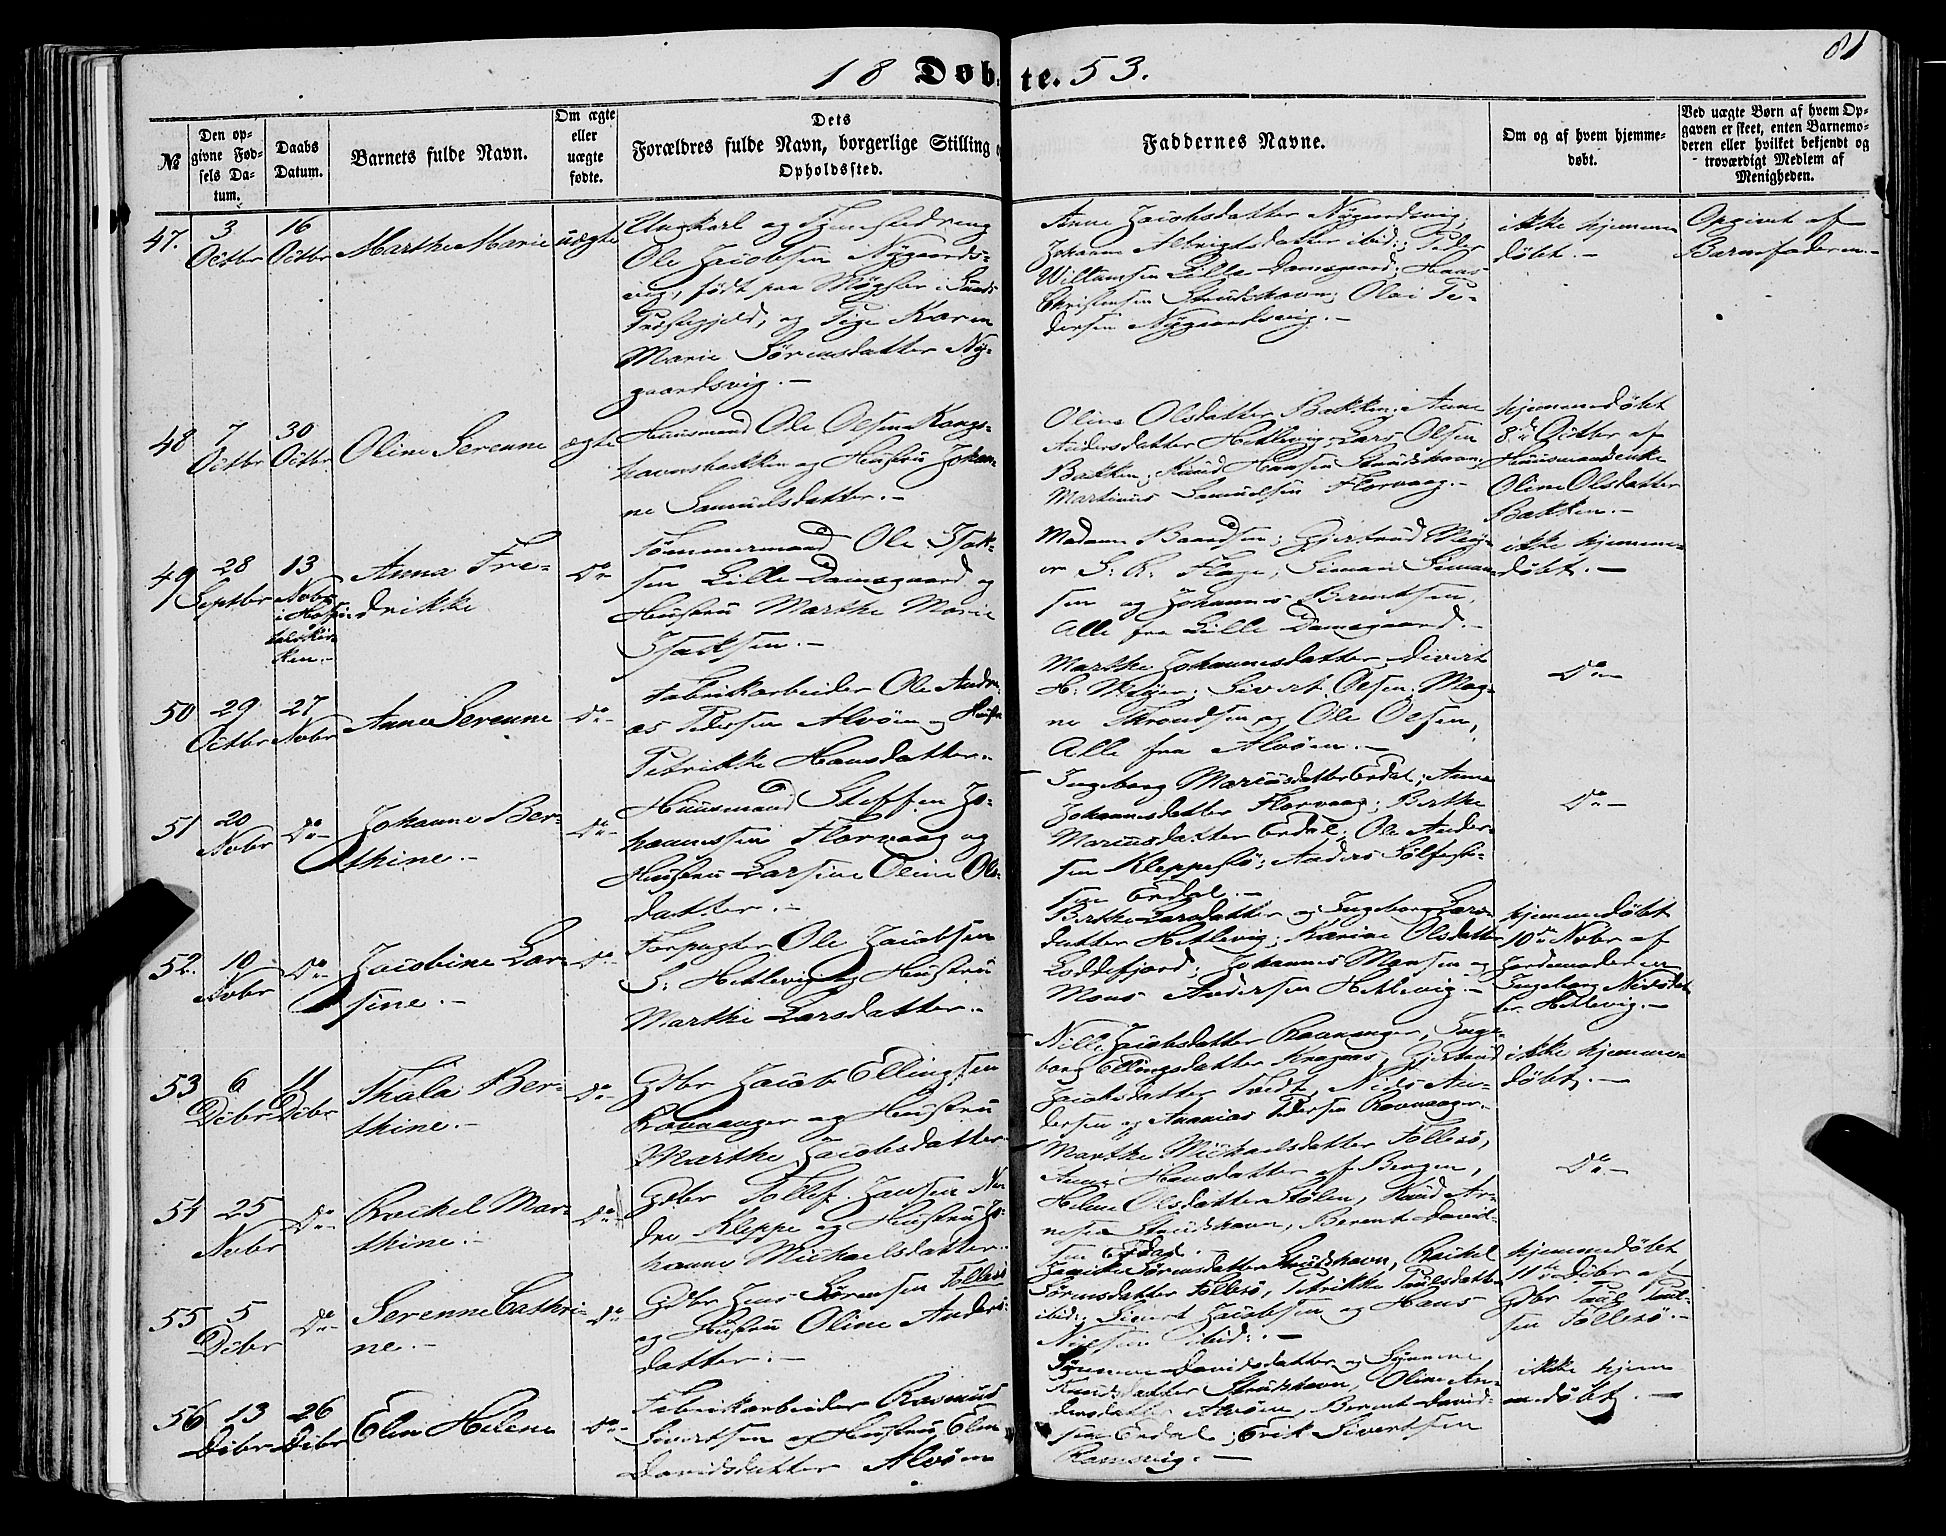 81
18 Døbte. 53.
№
Den opgivne Fødsels Datum.
Daabs Datum.
Barnets fulde Navn.
Om ægte eller uægte fødte.
Dets Forældres fulde Navn, borgerlige Stilling
Opholdssted.
Faddernes Navne.
Om og af hvem hjemmedøbt.
Ved uægte Børn af hvem Opgaven er skeet, enten Barnemoderen eller hvilket bekjendt og troværdigt Medlem af Menigheden.
47.
3
Octbr
16
Octbr
Marthe Marie
uægte
Ungkarl og Tjenestedreng
Ole Jacobsen Nygaards-
vig, født paa Møgster i Sunds
Præstegjeld, og Pige Karen
Marie Sörensdatter Ny-
gaardsvig.-
Anne Jacobsdatter Nygaardsvig;
Johanne Albrigtsdatter ibid:; Peder
Willumsen Lille Damsgaard; Hans
Christensen Strudshavn; Olai Pe-
dersen Nygaardsvig.-
ikke hjemme
døbt.-
Opgivet af
Barnefaderen.-
48
7
Octbr
30
Octbr
Oline Serenne
ægte
Huusmand Ole Olsen Kongs-
havnsbakken og Hustru Johan-
ne Samuelsdatter.-
Oline Olsdatter Bakken; Anne
Andersdatter Hetlevig; Lars Olsen
Bakken; Knud Hansen Strudshavn;
Martinus Samuelsen Florvaag.-
hjemmedøbt
8de Octbr af
Huusmandsenke
Oline Olsdatter
Bakken.-
49
28
Septbr
13
Novbr
i Hospi-
talskir-
ken.-
Anna Fre-
drikke
Do
Tømmermand Ole Isak-
sen Lille Damsgaard og
Hustru Marthe Marie
Isacksen.-
Madame Baardsen; Gjertrud
S. R. Flage; Simon Simon-
sen og Johannes Berentsen,
Alle fra Lille Damsgaard.-
ikke hjemme-
døbt.-
50
29
Octbr
27
Novbr
Anne Serenne
Do
Fabrikarbeider Ole Andre-
as Pedersen Alvøen og Hustru
Petrikke Hansdatter.-
Marthe Johannesdatter; Sivert
H. ; Sivert Olsen; Mag-
ne Throndsen og Ole Olsen,
Alle fra Alvøen.-
Do
51
20
Novbr
Do
Johanne Ber-
thine.-
Do
Huusmand Steffen Jo-
hannessen Florvaag og
Hustru Larsine Oline Ols-
datter.-
Ingeborg Mariusdatter Erdal; Anne
Johannesdatter Florvaag; Berthe
Mariusdatter Erdal; Ole Ander-
sen Kleppesø; Anders Sølfest-
sen Erdal.-
Do
52.
10
Novbr
Do
Jacobine Lar-
sine.-
Do
Forpagter Ole Jacobsen
S: Hetlevig og Hustru
Marthe Larsdatter.-
Berthe Larsdatter og Ingeborg Lars-
datter Hetlevig; Karine Olsdatter
Loddefjord; Johannes Monsen og
Mons Andersen Hetlevig.-
hjemmedøbt
10de Novbr af
Jordemoderen
Ingeborg Nielsdat-
ter Hetlevig.-
53
6
Decbr
11
Decbr
Thala Ber-
thine.-
Do
Gdbr Jacob Ellingsen
Ravnanger og Hustru
Marthe Jacobsdatter
Nille Jacobsdatter Ravnanger; Inge-
borg Ellingsdatter Kragaas; Gjertrud
Jacobsdatter Tvedt, Niels An-
dersen og Ananias Pedersen Ravnanger.
ikke hjemme-
døbt.-
54
25
Novbr
Do
Rachel Mar-
thine.-
Do
Gdbr Tollef Jansen Ne-
dre Kleppe og Hustru Jo-
hanne Michaelsdatter.
Marthe Michaelsdatter Follesø;
Anne Hansdatter af Bergen,
Helene Olsdatter Stølen, Knud Ar-
nesen Strudshavn, Berent David-
sen Erdal.
Do
55
5
Decbr
Do
Serenne Cathri-
ne.-
Do
Gdbr Jens Sørensen Follesø
og Hustru Oline Anders-
datter.-
Janike Sørensdatter Strudshavn, Rachel
Sørensdatter Follesø, Petrikke Paulsdatter
ibid:, Sivert Jacobsen og Hans
Nielsen ibid:.-
hjemmedøbt
11te Decbr af
Gdbr Paul Paul-
sen Follesø.-
56
13
Decbr
26
Decbr
Elen Helene
Do
Fabrikarbeider Rasmus
Sivertsen og Hustru Elen
Davidsdatter Alvøen
Sønneve Davidsdatter og Sønneve
Knudsdatter Strudshavn, Oline An-
dersdatter Alvøen, Berent David-
sen Erdal; Erik Sivertsen
Ramsvig.-
ikke hjem-
medøbt.-